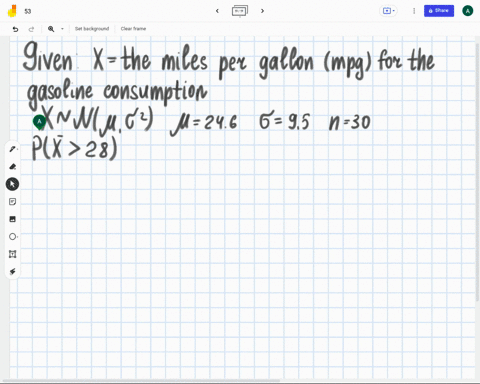 53
Share
A
Set background
Clear frame
Given X = the miles per gallon (mpg) for the
gasoline consumption
A
X ~ N(μ, σ²) μ = 24.6 σ = 9.5 n = 30
P(X̄ > 28)